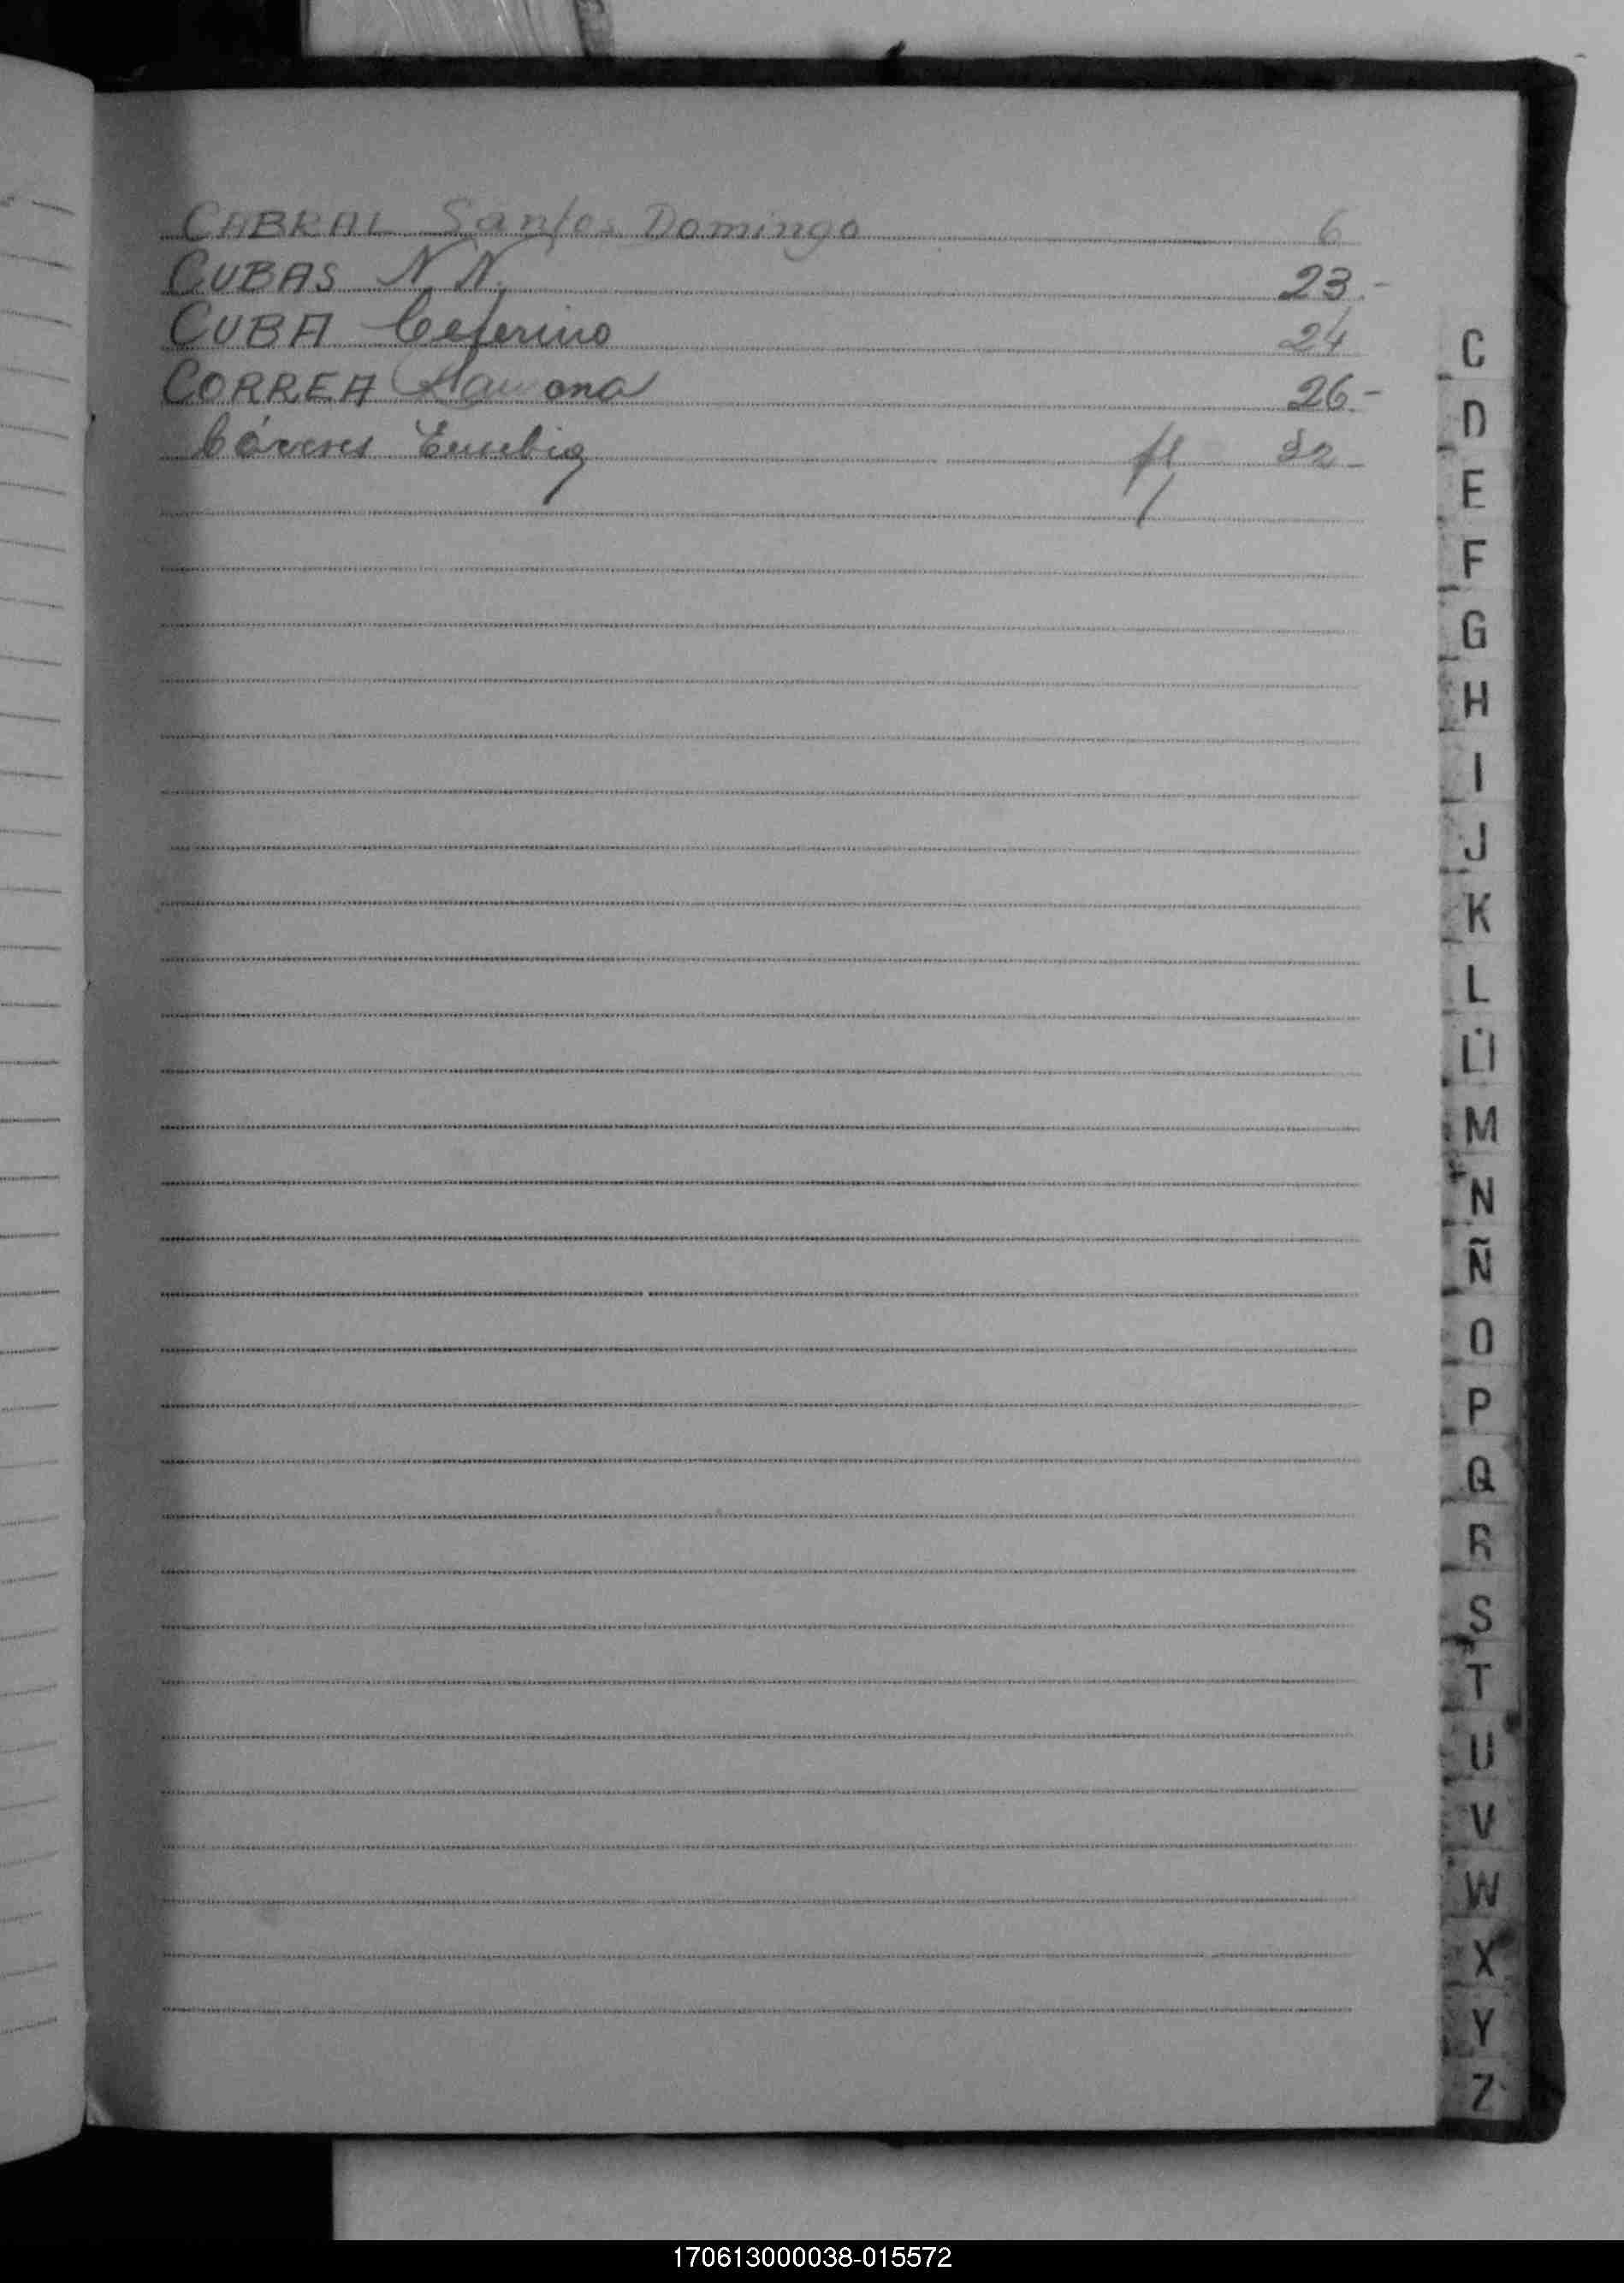 CABRAL Santos Domingo 6
CUBAS N.N. 23.-
CUBA Ceferino 24
CORREA Ramona 26.-
Cáceres Eusebia fl 32-
C
D
E
F
G
H
I
J
K
L
Ll
M
N
Ñ
O
P
Q
R
S
T
U
V
W
X
Y
Z
170613000038-015572